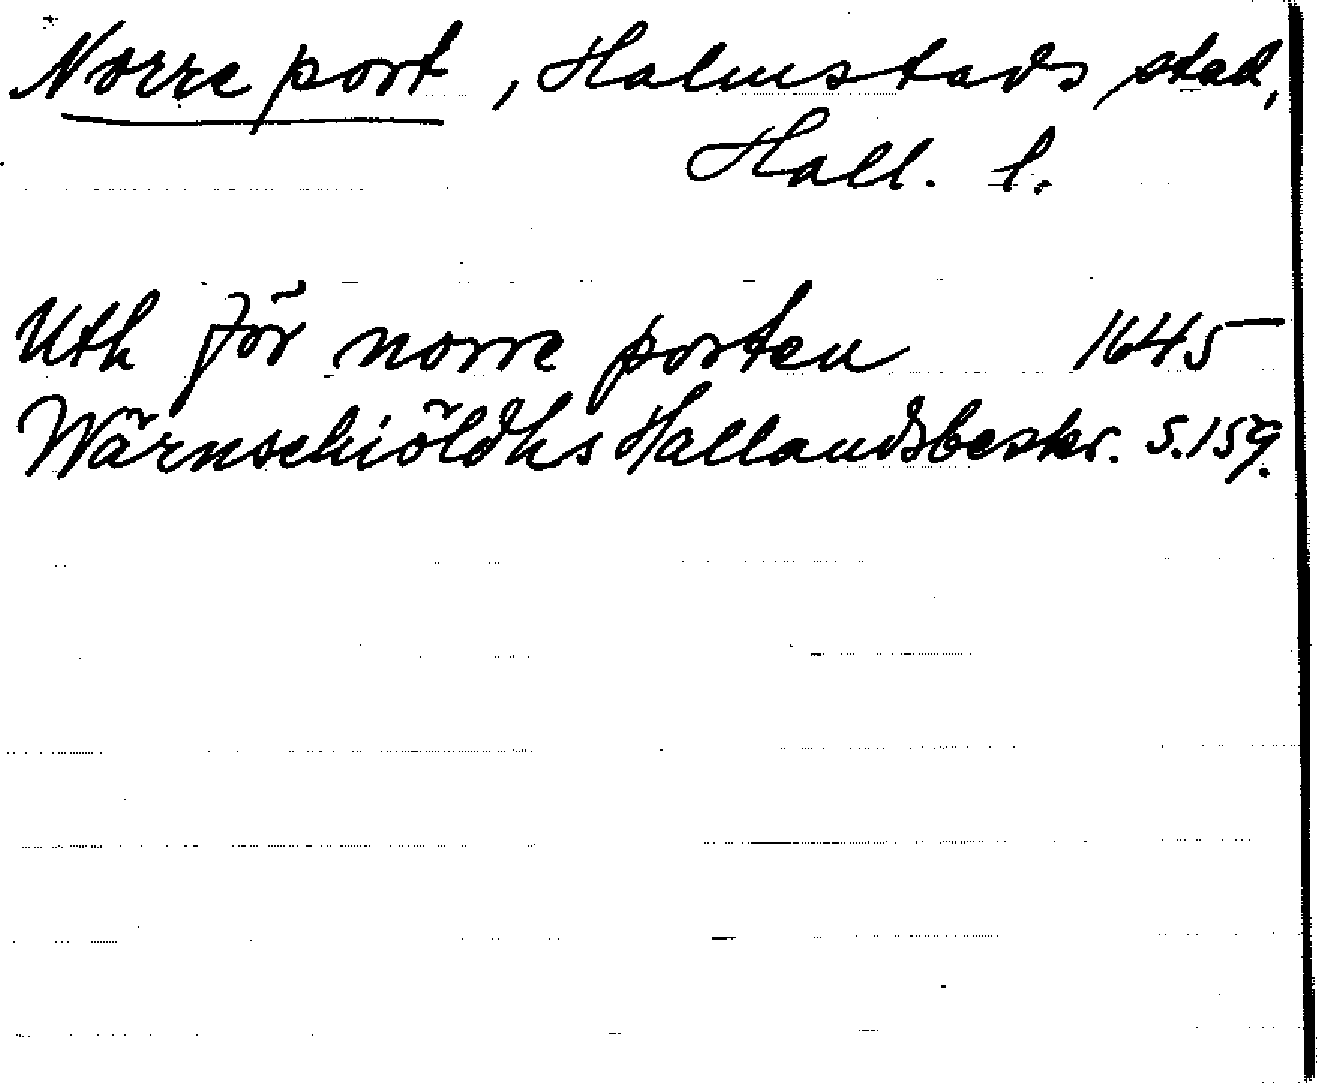 Norre port, Halmstads stad,
Hall. l.
Uth för norre porten 1645
Wärnschiöldhs Hallandsbeskr. S. 159.